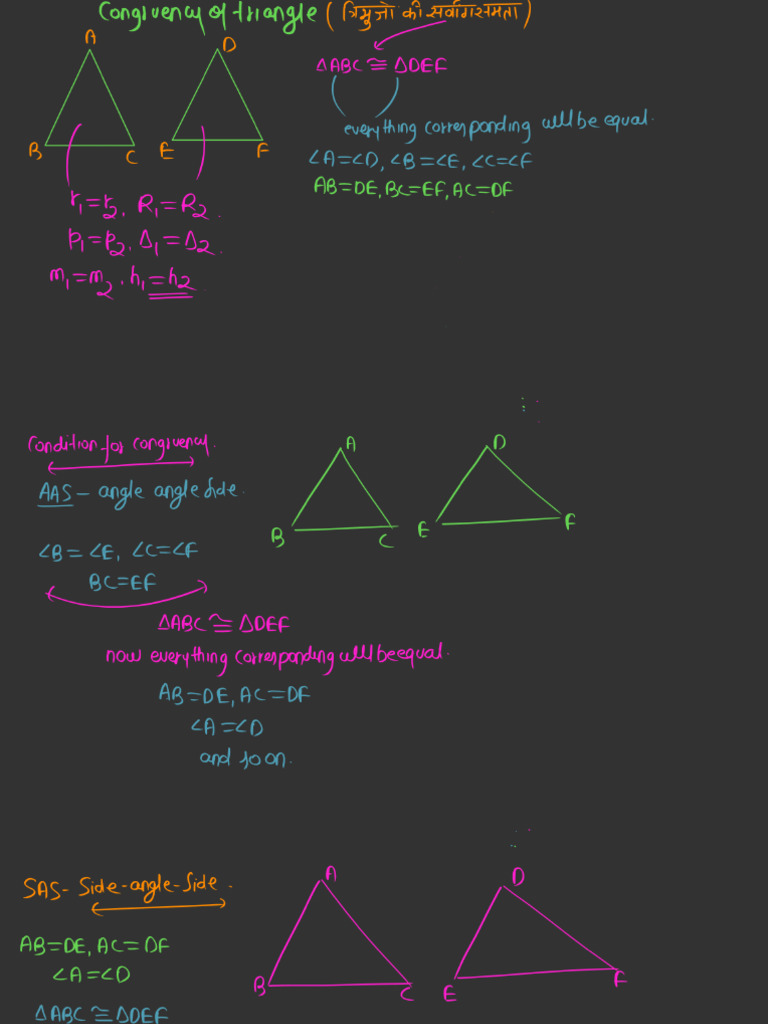 Congruency of triangle (त्रिभुजो की सर्वागसमता)
A
D
B
C
E
F
∆ABC ≅ ∆DEF
everything corresponding will be equal.
∠A=∠D, ∠B=∠E, ∠C=∠F
AB=DE, BC=EF, AC=DF
r₁=r₂, R₁=R₂.
p₁=p₂, ∆₁=∆₂.
m₁=m₂, h₁=h₂
Condition for congruency.
AAS - angle angle side.
∠B=∠E, ∠C=∠F
BC=EF
A
D
B
C
E
F
∆ABC ≅ ∆DEF
now everything corresponding will be equal.
AB=DE, AC=DF
∠A=∠D
and so on.
SAS- Side-angle-Side.
AB=DE, AC=DF
∠A=∠D
∆ABC ≅ ∆DEF
A
D
B
C
E
F